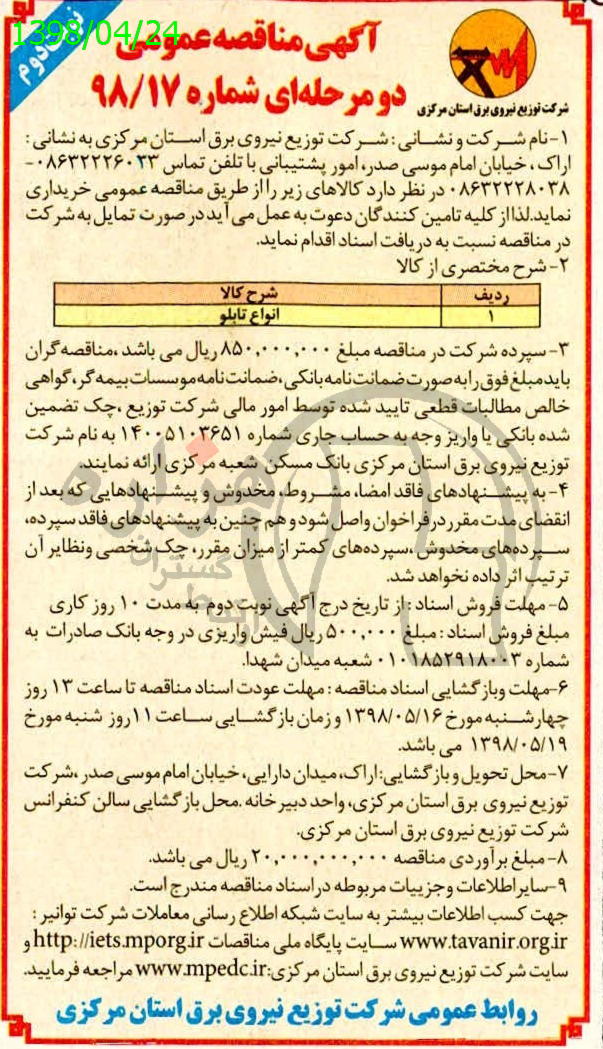 1398/04/24
نوبت دوم
آگهی مناقصه عمومی
دو مرحله‌ای شماره ۹۸/۱۷
شرکت توزیع نیروی برق استان مرکزی
۱- نام شرکت و نشانی : شرکت توزیع نیروی برق استان مرکزی به نشانی :
اراک ، خیابان امام موسی صدر، امور پشتیبانی با تلفن تماس ۰۸۶۳۲۲۲۶۰۲۳-
۰۸۶۳۲۲۲۸۰۳۸ در نظر دارد کالاهای زیر را از طریق مناقصه عمومی خریداری
نماید.لذا از کلیه تامین کنندگان دعوت به عمل می آید در صورت تمایل به شرکت
در مناقصه نسبت به دریافت اسناد اقدام نماید.
۲- شرح مختصری از کالا
ردیف شرح کالا
۱ انواع تابلو
۳- سپرده شرکت در مناقصه مبلغ ۸۵۰,۰۰۰,۰۰۰ ریال می باشد ،مناقصه گران
باید مبلغ فوق را به صورت ضمانت نامه بانکی،ضمانت نامه موسسات بیمه گر، گواهی
خالص مطالبات قطعی تایید شده توسط امور مالی شرکت توزیع ،چک تضمین
شده بانکی یا واریز وجه به حساب جاری شماره ۱۴۰۰۵۱۰۳۶۵۱ به نام شرکت
توزیع نیروی برق استان مرکزی بانک مسکن شعبه مرکزی ارائه نمایند.
۴- به پیشنهادهای فاقد امضا، مشروط، مخدوش و پیشنهادهایی که بعد از
انقضای مدت مقرر در فراخوان واصل شود و هم چنین به پیشنهادهای فاقد سپرده،
سپرده‌های مخدوش ،سپرده‌های کمتر از میزان مقرر، چک شخصی ونظایر آن
ترتیب اثر داده نخواهد شد.
۵- مهلت فروش اسناد : از تاریخ درج آگهی نوبت دوم به مدت ۱۰ روز کاری
مبلغ فروش اسناد : مبلغ ۵۰۰,۰۰۰ ریال فیش واریزی در وجه بانک صادرات به
شماره ۰۱۰۱۸۵۲۹۱۸۰۰۳ شعبه میدان شهدا.
۶-مهلت وبازگشایی اسناد مناقصه : مهلت عودت اسناد مناقصه تا ساعت ۱۳ روز
چهارشنبه مورخ ۱۳۹۸/۰۵/۱۶ و زمان بازگشایی ساعت ۱۱ روز شنبه مورخ
۱۳۹۸/۰۵/۱۹ می باشد.
۷-محل تحویل و بازگشایی:اراک،میدان دارایی،خیابان امام موسی صدر ،شرکت
توزیع نیروی برق استان مرکزی، واحد دبیرخانه .محل بازگشایی سالن کنفرانس
شرکت توزیع نیروی برق استان مرکزی.
۸- مبلغ برآوردی مناقصه ۲۰,۰۰۰,۰۰۰,۰۰۰ ریال می باشد.
۹-سایر اطلاعات و جزییات مربوطه در اسناد مناقصه مندرج است.
جهت کسب اطلاعات بیشتر به سایت شبکه اطلاع رسانی معاملات شرکت توانیر :
www.tavanir.org.ir سایت پایگاه ملی مناقصات http://iets.mporg.ir و
سایت شرکت توزیع نیروی برق استان مرکزی:www.mpedc.ir مراجعه فرمایید.
روابط عمومی شرکت توزیع نیروی برق استان مرکزی